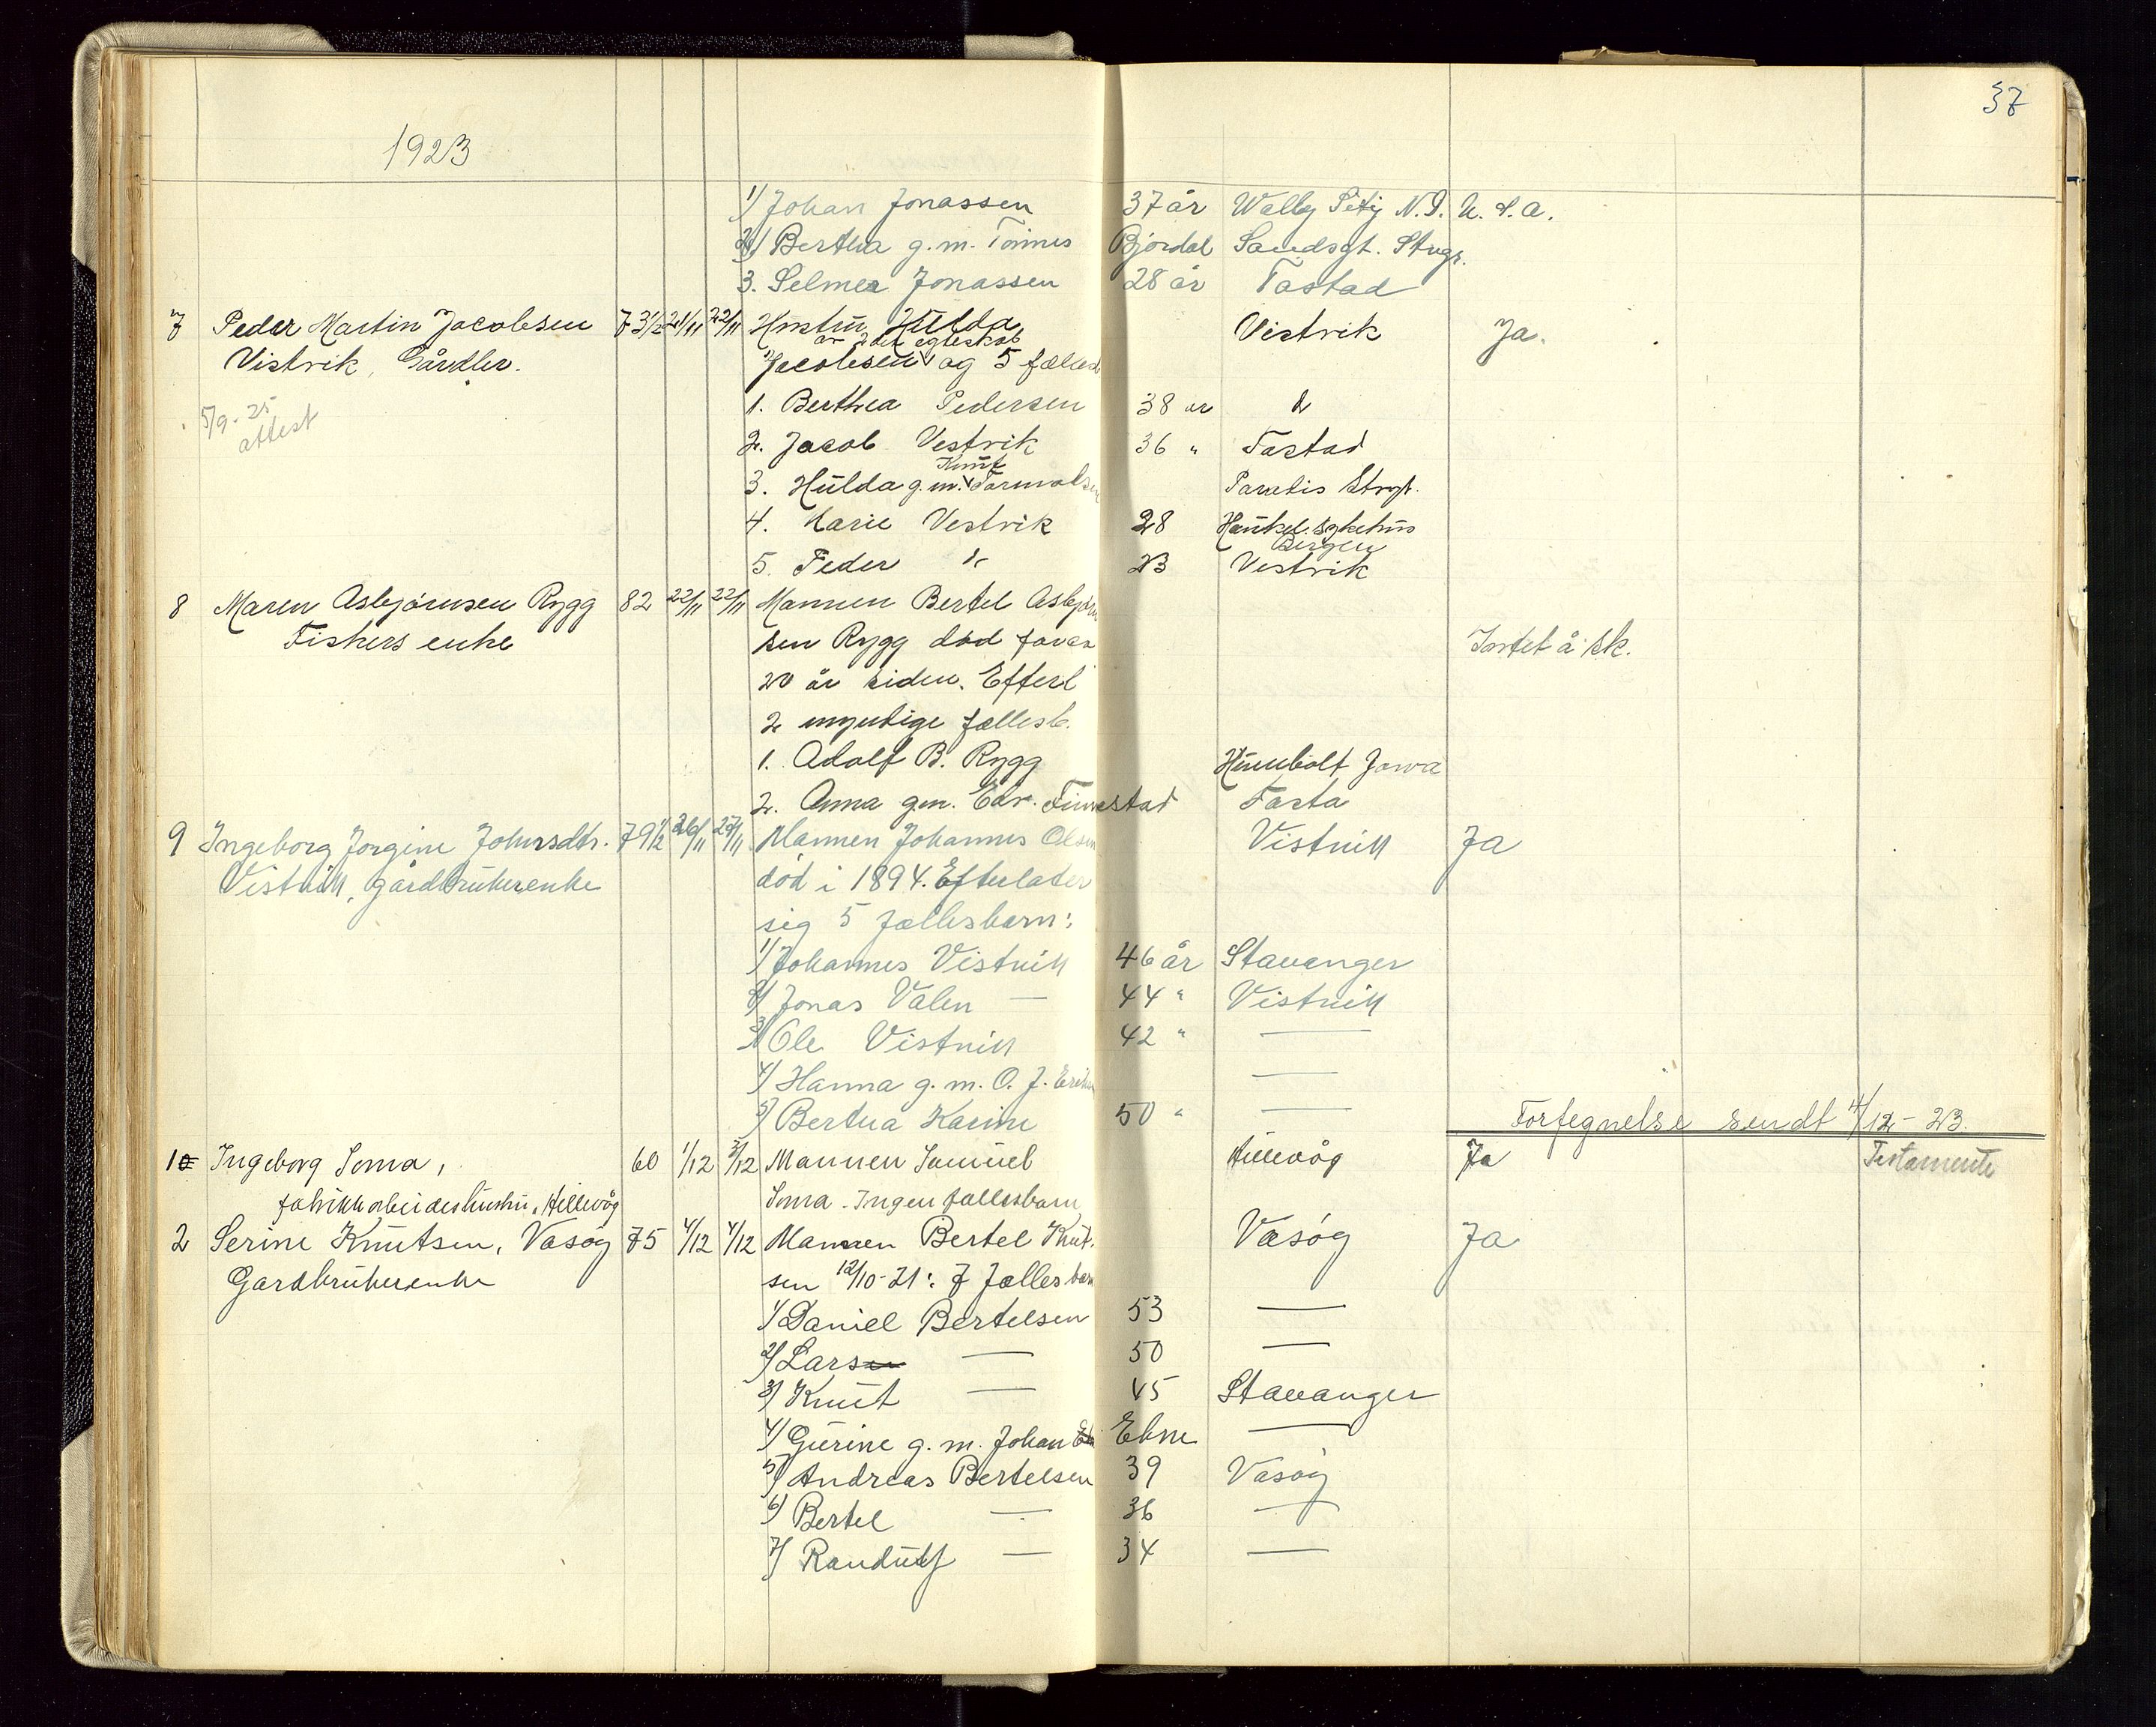 37
1923
1) Johan Jonassen 37 år Wally City N.D. U.S.A.
2) Bertha g.m. Tønnes Bjordal Sandsgt. Stvgr.
3. Selmer Jonassen 28 år Tastad
7 Peder Martin Jacobsen 73½ 21/11 22/11 Hustru Hulda Vistvik Ja.
av 2det egteskab
Vistvik, Gårdbr. Jacobsen og 5 fælles
5/9-25 1. Berthea Pedersen 38 år d
attest
2. Jacob Vestvik 36 " Tastad
Knut
3. Hulda g.m. Tormodsen Paradis Stvgr.
4. Marie Vestvik 28 Haukel. sykehus
Bergen
5. Peder d 23 Vestvik
8 Maren Asbjørnsen Rygg 82 22/11 22/11 Mannen Bertel Asbjørn
Fiskers enke sen Rygg død for ca Intet å sk.
20 år siden. Efterl
2 myndige fællesb.
1. Adolf B. Rygg Humbolt Jowa
2. Anna gm. Edv. Finnestad Tasta
9 Ingeborg Jorgine Johnsdtr. 79½ 26/11 27/11 Mannen Johannes Olsen Vistnill Ja
Vistnill, gårdbrukerenke død i 1894. Efterlader
sig 5 fællesbarn:
1) Johannes Vistnill 46 år Stavanger
2) Jonas Valen — 44 " Vistnill
3) Ole Vistnill 42 " —
4) Hanna g. m. O. J. —
5) Bertha Karine 50 " —
Fortegnelse sendt 4/12-23.
10 Ingeborg Soma, 60 1/12 3/12 Mannen Samuel Hillevåg Ja Testamente
fabrikkarbeiderhustru, Hillevåg Soma. Ingen fællesbarn
2 Serine Knutsen, Vasøy 75 4/12 4/12 Mannen Bertel Knut- Vasøy Ja
Gardbrukerenke sen 12/10-21: 7 fællesbarn
1) Daniel Bertelsen 53 —
2) Lars — 50 —
3) Knut — 45 Stavanger
4) Gurine g. m. Johan Ebne —
5) Andreas Bertelsen 39 Vasøy
6) Bertel — 36 —
7) Randulf — 34 —